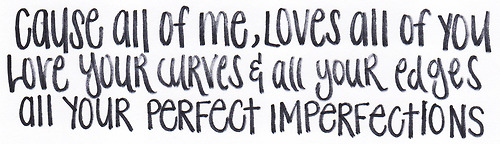 cause all of me, Loves all of you
Love your curves & all your edges
all your perfect imperfections